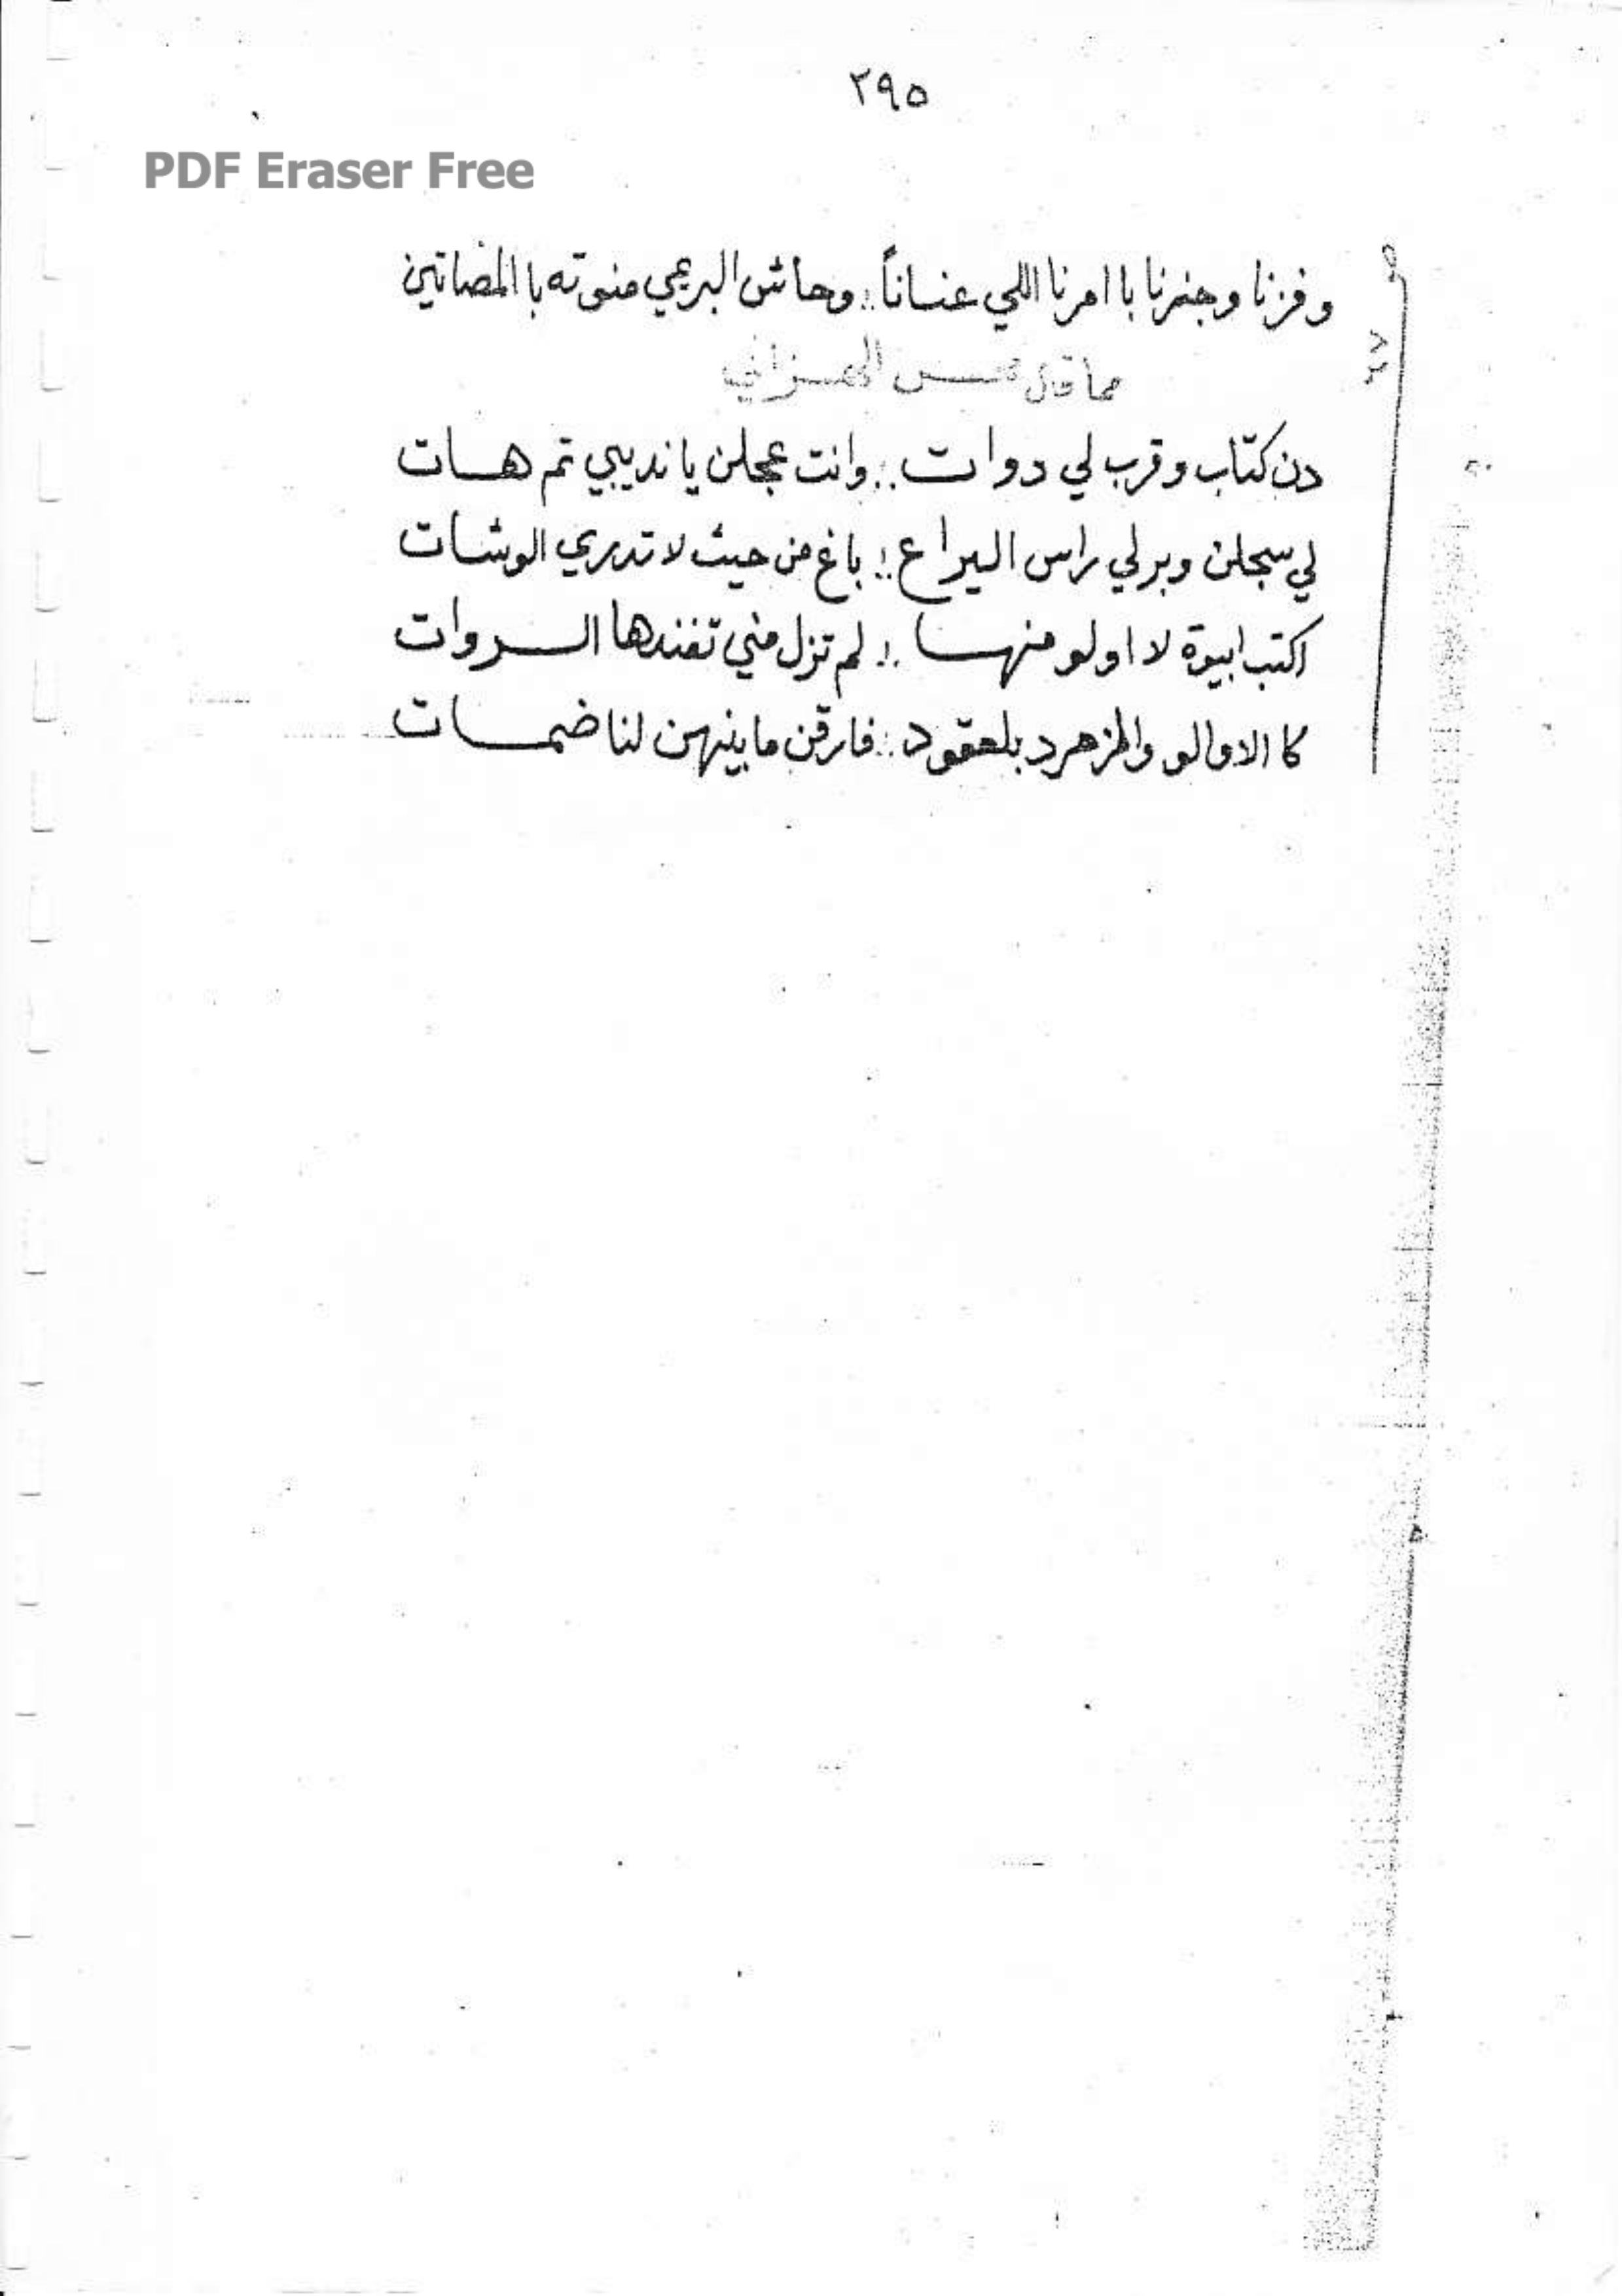 ٢٩٥
PDF Eraser Free
وفزنا وجنزنا با امرنا اللي عنساناً :: وحاش البرعي منوته با المضاتين
مما قال محسن الهزاني
دن كتاب وقرب لي دوات :: وانت عجلن يا نديبي تم هات
لي سجلن وبر لي راس اليراع :: باغ من حيث لا تدري الوشات
اكتب ابيوة لا اولو منها :: لم تزل مني تفندها السروات
كا الاوالو والمزهرد بلعقود :: فارقن ما بينهن لنا ضمات